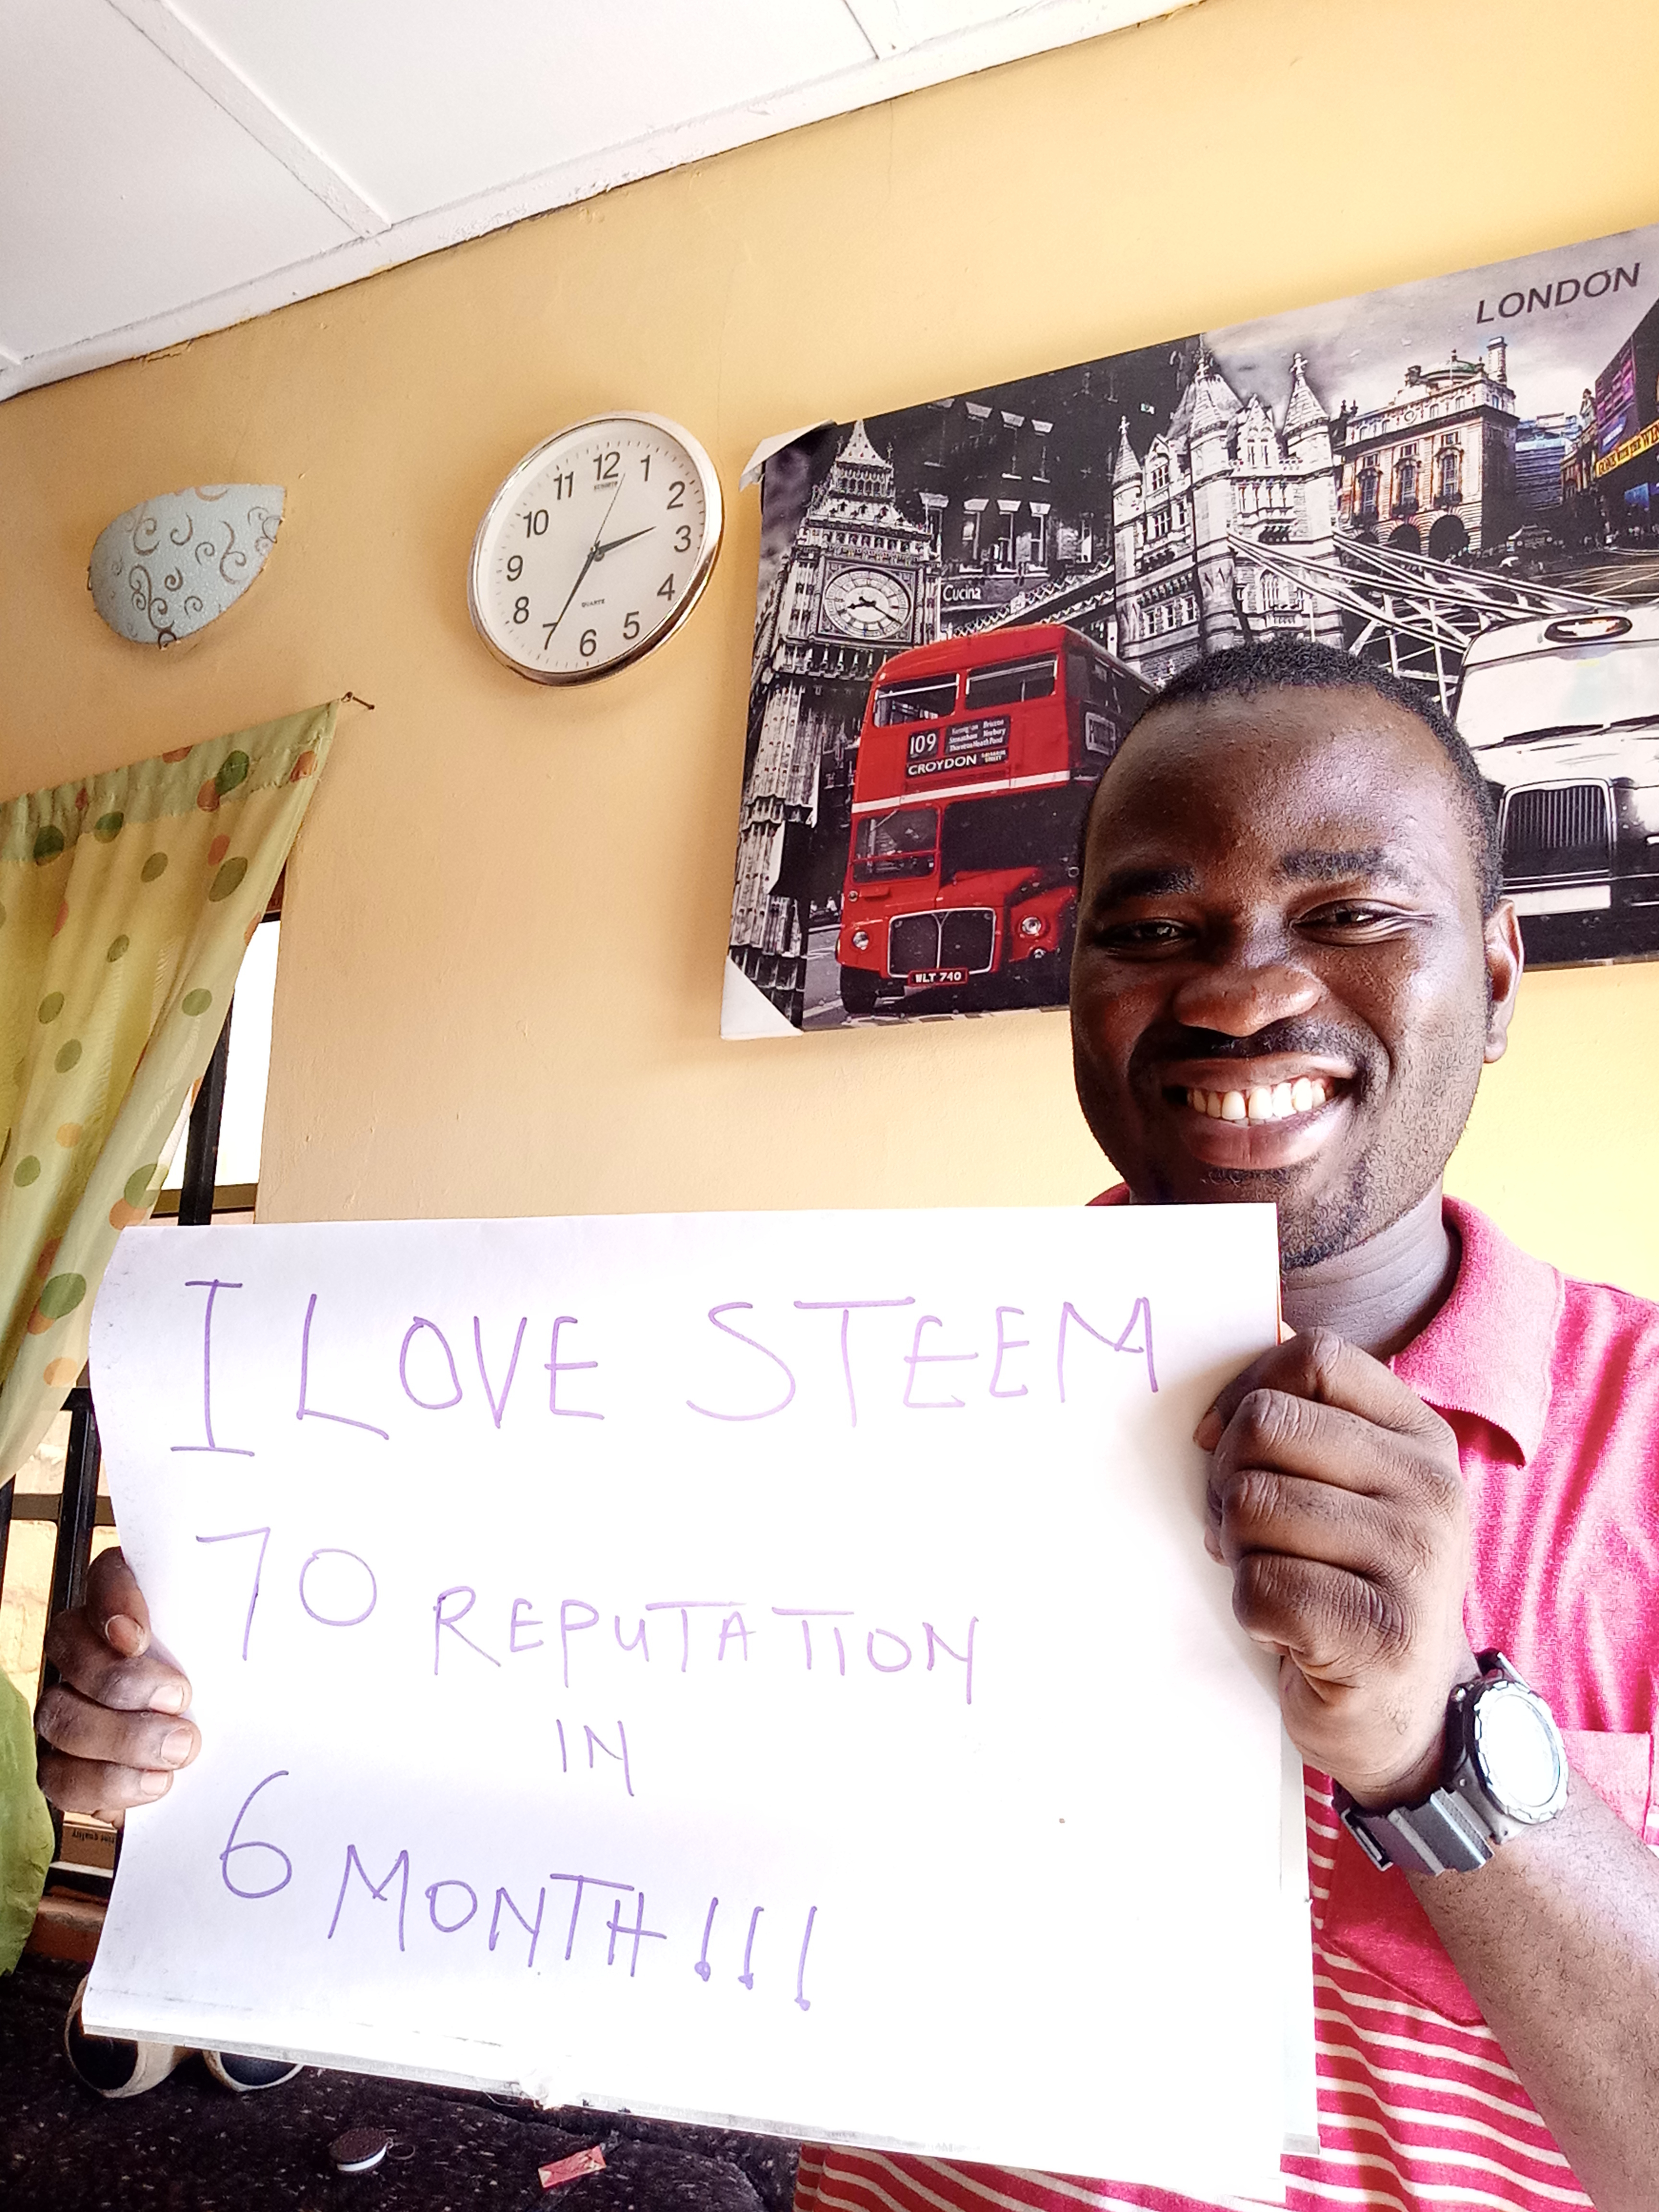 LONDON
12
1
2
3
4
5
6
8
9
10
11
QUARTZ
Cucina
109
CROYDON
WLT 740
I LOVE STEEM
70 REPUTATION
IN
6 MONTH!!!